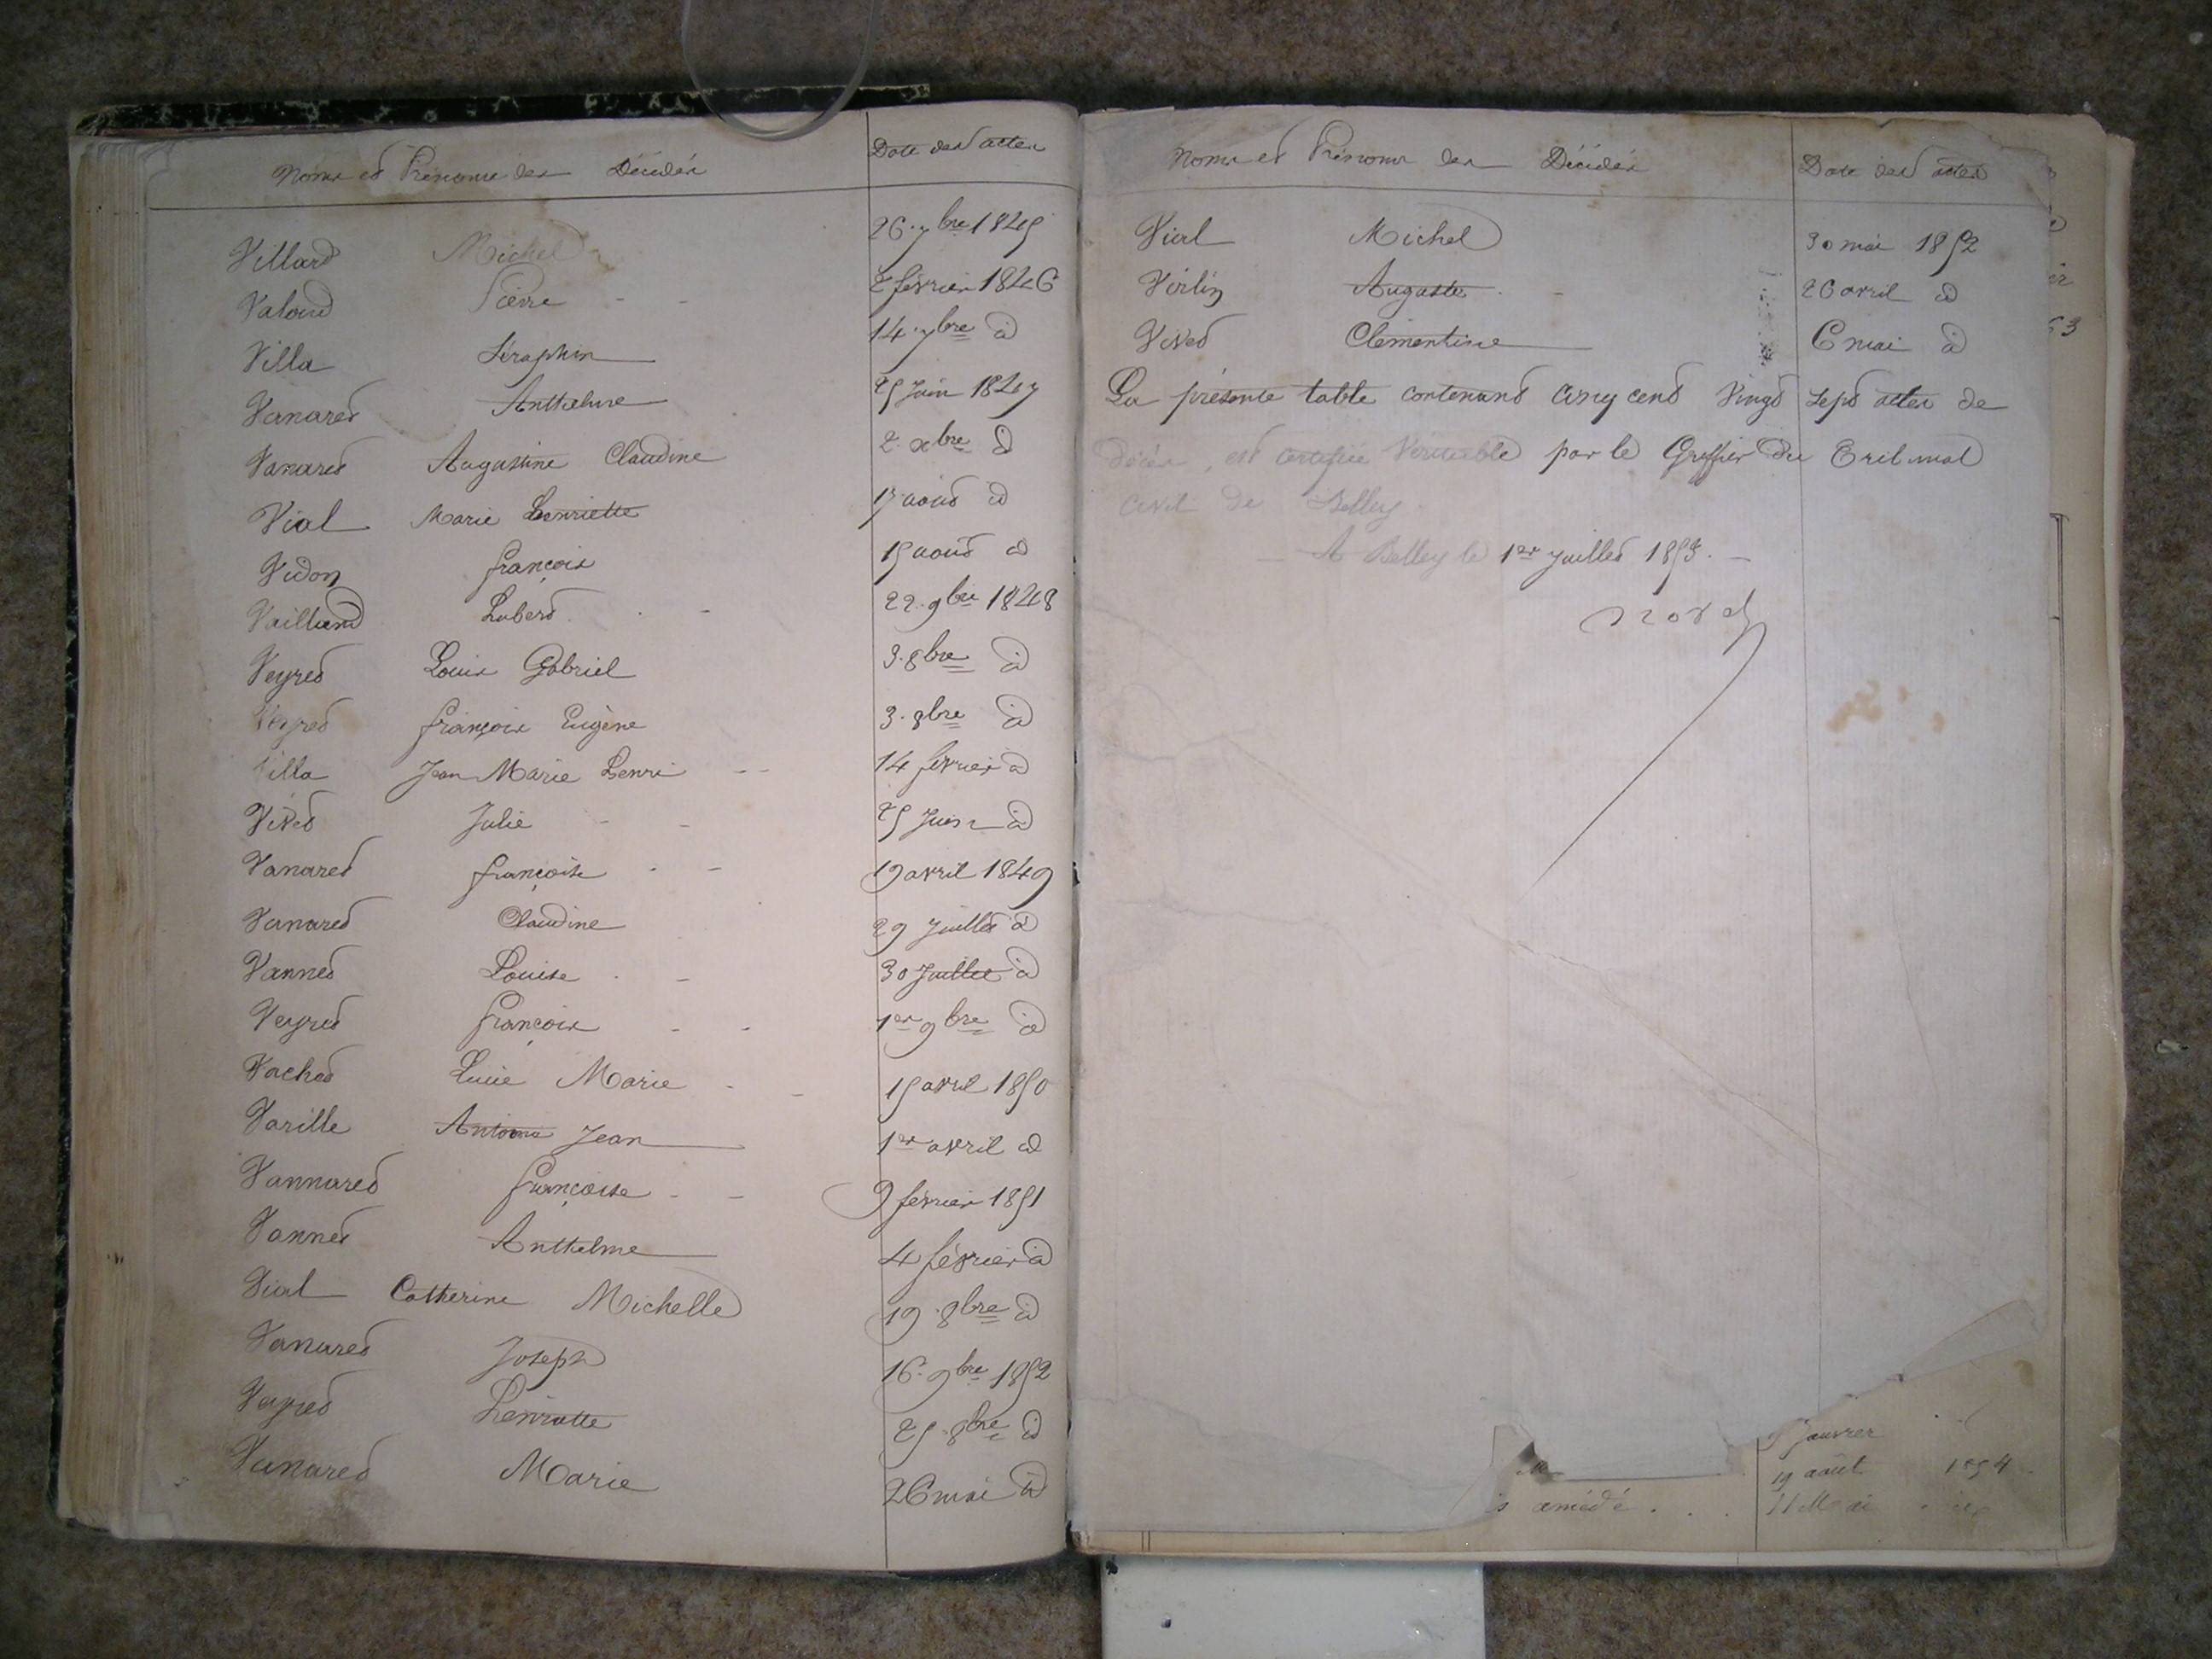 Noms et Prénoms des Décédés Date des actes
Villard Michel 26 7bre 1845
Valoud Pierre 2 février 1846
Villa Séraphin 14 7bre id
Vanaret Anthelme 25 Juin 1847
Vanaret Augustine Claudine 2 xbre id
Vial Marie henriette 17 août id
Vidon françois 15 août id
Vailland hubert 22 9bre 1848
Veyret Louis Gabriel 3 8bre id
Veyret françois Eugène 3 8bre id
Villa Jean Marie henri 14 février id
Vivet Julie 25 Juin id
Vanaret françoise 19 avril 1849
Vanaret Claudine 29 Juillet id
Vannet Louise 30 Juillet id
Veyret françois 1er 9bre id
Vachet Lucie Marie 15 avril 1850
Varille Antoine Jean 1er avril id
Vannaret françoise 9 février 1851
Vannet Anthelme 4 février id
Vial Catherine Michelle 19 8bre id
Vanaret Joseph 16 9bre 1852
Veyret henriette 25 8bre id
Vanaret Marie 26 mai id
Noms et Prénoms des Décédés Date des actes
Vial Michel 30 mai 1852
Virlin Auguste 26 avril id
Vivet Clémentine 6 mai id
La présente table contenant cinq cent Vingt sept actes de
décès, est certifiée Véritable par le Greffier du Tribunal
civil de Belley.
A Belley le 1er juillet 1853.
Janvier
19 août 1854
amédé 11 Mai